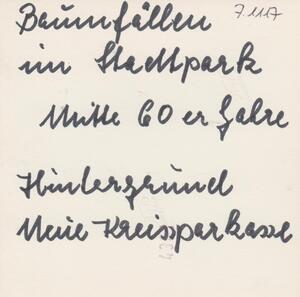 7.1117
Baumfällen
im Stadtpark
Mitte 60er Jahre
Hintergrund
Neue Kreissparkasse